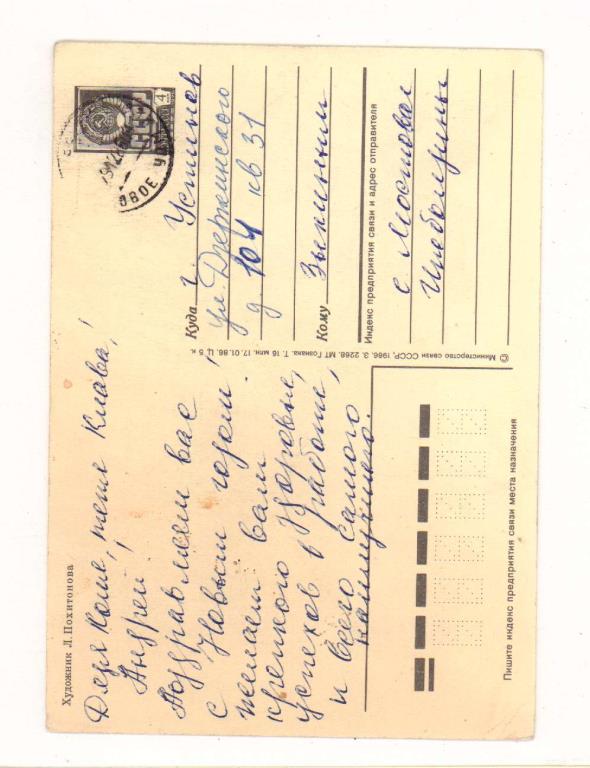 Художник Л. Похитонова
Дядя Коля, тетя Клава,
Андрей!
Поздравляем вас
с Новым годом!
желаем вам
крепкого здоровья,
успехов в работе,
и всего самого
наилучшего.
4
Куда г. Устинов
ул. Дзержинского
д. 104 кв 31
Кому Зыкиным
Индекс предприятия связи и адрес отправителя
с. Мостовое
© Министерство связи СССР, 1986. З. 2268. МТ Гознака. Т. 16 млн. 17.01.86. Ц. 5 к.
Пишите индекс предприятия связи места назначения